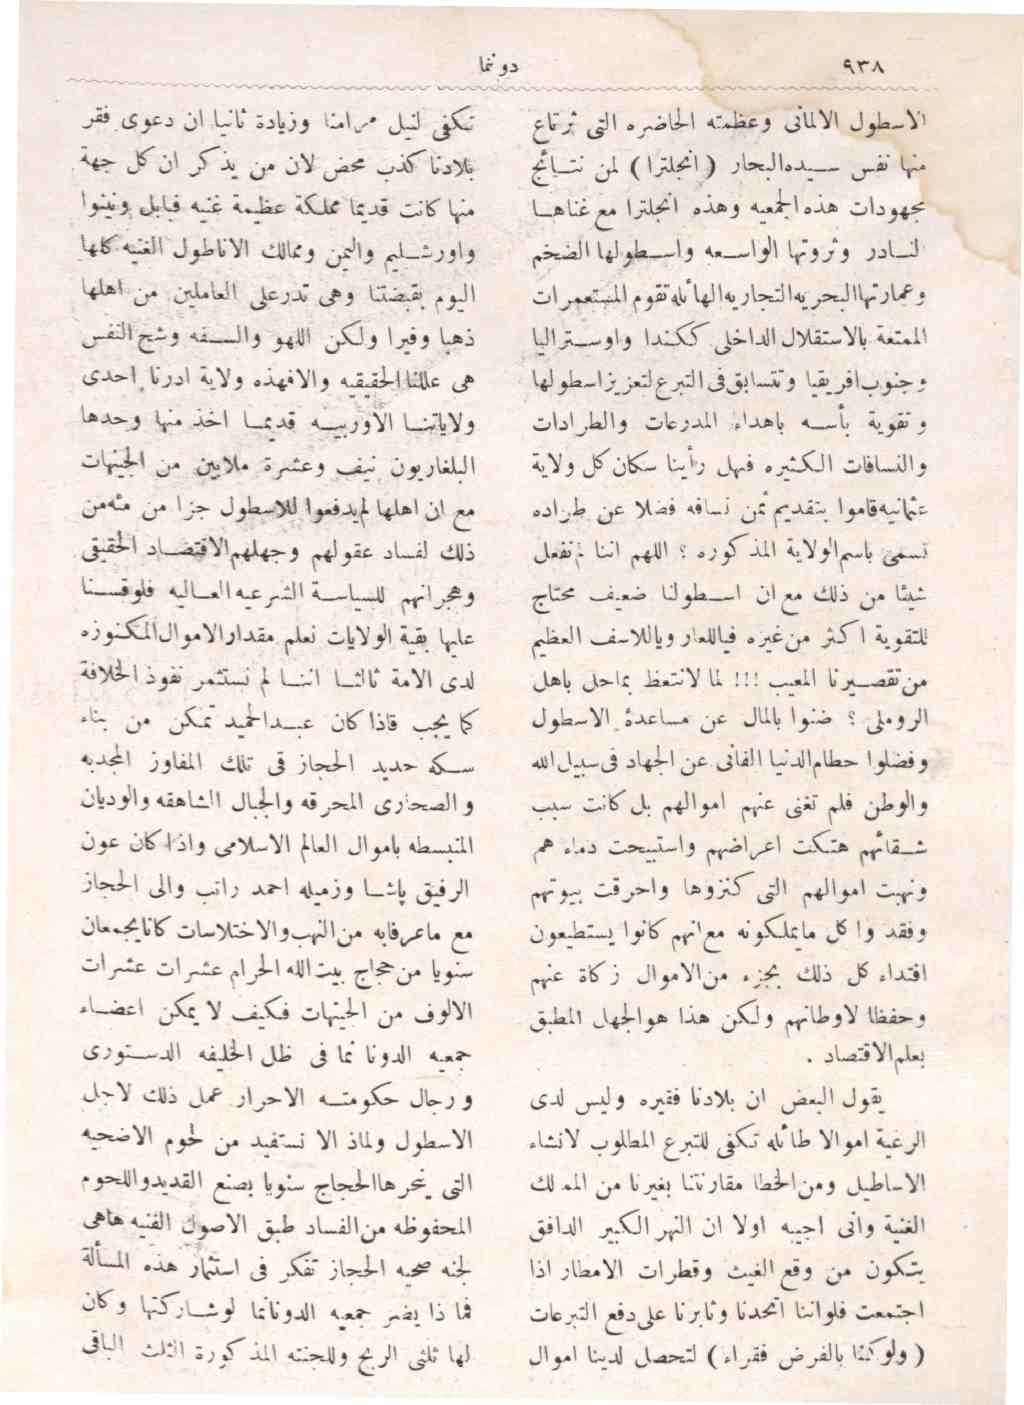 ٩٣٨
دونما
الاسطول الالمانى وعظمته الحاضره التى ترتاع
منها نفس سيده البحار ( انجلترا ) لمن نتائج
مجهودات هذه الجمعيه وهذه انجلترا مع غناها
النادر وثروتها الواسعه واسطولها الضخم
وعمارتها البحريه التجاريه الهائله تقوم المستعمرات
الممتعة بالاستقلال الداخلى ككندا واوستراليا
وجنوب افريقيا وتتسابق فى التبرع لتعزيز اسطولها
وتقوية بأسه باهداء المدرعات والطرادات
والنسافات الكثيره فهل رأينا سكان كل ولاية
عثمانيه قاموا بتقديم ثمن نسافه فضلا عن طراده
تسمى باسم الولاية المذكوره ؟ اللهم اننا لم نفعل
شيئا من ذلك مع ان اسطولنا ضعيف محتاج
للتقوية اكثر من غيره فياللعار وياللاسف العظيم
من تقصيرنا المعيب !!! لما لانتعظ بماحل باهل
الروملى ؟ ضنوا بالمال عن مساعدة الاسطول
وفضلوا حطام الدنيا الفانى عن الجهاد فى سبيل الله
والوطن فلم تغنى عنهم اموالهم بل كانت سبب
شقائهم هتكت اعراضهم واستبيحت دماء هم
ونهبت اموالهم التى كنزوها واحرقت بيوتهم
وفقد وا كل مايملكونه مع انهم كانوا يستطيعون
افتداء كل ذلك بجزء من الاموال زكاة عنهم
وحفظا لاوطانهم ولكن هذا هو الجهل المطبق
بعلم الاقتصاد .
يقول البعض ان بلادنا فقيره وليس لدى
الرعية اموالا طائله تكفى للتبرع المطلوب لانشاء
الاساطيل ومن الخطا مقارنتنا بغيرنا من الممالك
الغنية وانى اجيبه اولا ان النهر الكبير الدافق
يتكون من وقع الغيث وقطرات الامطار اذا
اجتمعت فلواننا اتحدنا وثابرنا على دفع التبرعات
( ولو كنا بالفرض فقراء ) لتحصل لدينا اموال
تكفى لنيل مرامنا وزيادة ثانيا ان دعوى فقر
بلادنا كذب محض لان من يذكر ان كل جهة
منها كانت قديما مملكة عظيمة غنيه فبابل ونينوا
واورشليم واليمن وممالك الاناطول الغنيه كلها
اليوم بقبضتنا وهى تدر على العاملين من اهلها
ذهبا وفيرا ولكن اللهو والسفه وشح النفس
هى عللنا الحقيقيه والافهذه ولاية ادرنا احدى
ولاياتنا الاوربيه قديما اخذ منها وحدها
البلغاريون نيف وعشرة ملايين من الجنيهات
مع ان اهلها لم يدفعوا للاسطول جزا من مئه من
ذلك لفساد عقولهم وجهلهم الاقتصاد الحقيقى
وهجرانهم للسياسة الشرعيه العاليه فلوقسنا
عليها بقية الولايات نعلم مقدار الاموال المكنوزه
لدى الامة ثالثا اننا لم نستثمر نفوذ الخلافة
كما يجب فاذا كان عبد الحميد تمكن من بناء
سكه حديد الحجاز فى تلك المفاوز المجدبه
والصحارى المحرقه والجبال الشاهقه والوديان
المنبسطه باموال العالم الاسلامى واذا كان عون
الرفيق پاشا وزميله احمد راتب والى الحجاز
مع ماعرفابه من النهب والاختلاسات كانا يجمعان
سنويا من حجاج بيت الله الحرام عشرات عشرات
الالوف من الجنيهات فكيف لا يمكن اعضاء
جمعيه الدونا نما فى ظل الخليفه الدستورى
ورجال حكومته الاحرار عمل ذلك لاجل
الاسطول ولماذ الا نستفيد من لحوم الاضحيه
التى ينحرها الحجاج سنويا بصنع القديد واللحوم
المحفوظه من الفساد طبق الاصول الفنيه هاهى
لجنه صحيه الحجاز تفكر فى استثمار هذه المسألة
فما ذا يضر جمعيه الدونانما لوشاركتها وكان
لها ثلثى الربح وللجنته المذكورة الثلث الباقى